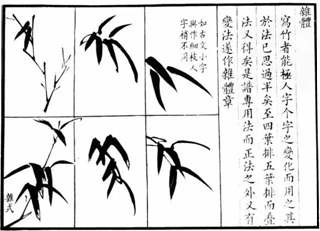 雜體
寫竹者能極人字个字之變化而用之其
於法已思過半矣至四葉排五葉排而疊
法又得矣是譜專用法而正法之外又有
變法遂作雜體章
如古文小字
與作細枝人
字稍不同
雜式